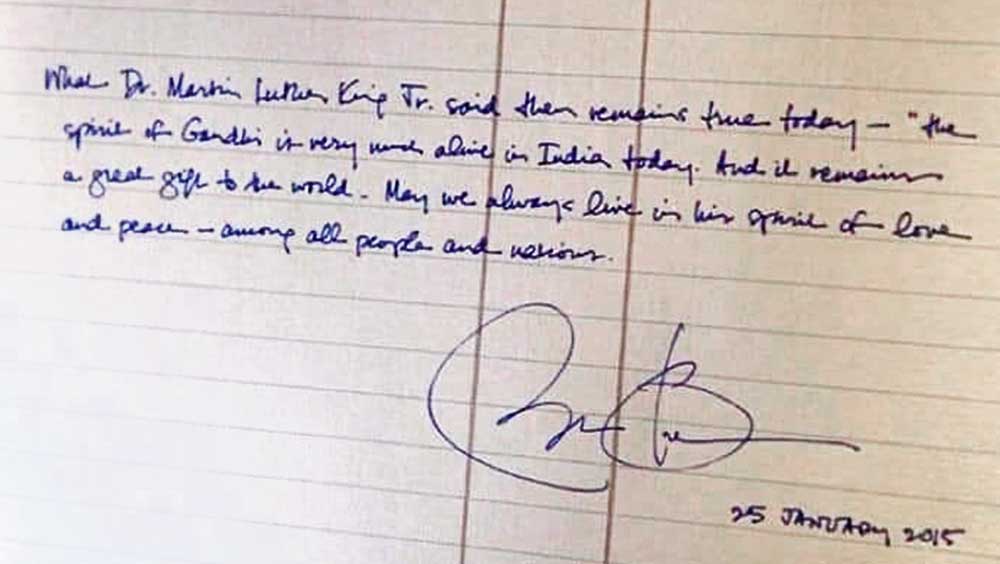 What Dr. Martin Luther King Jr. said then remains true today – "the
spirit of Gandhi is very much alive in India today. And it remains
a great gift to the world. May we always live in his spirit of love
and peace – among all people and nations.
25 JANUARY 2015